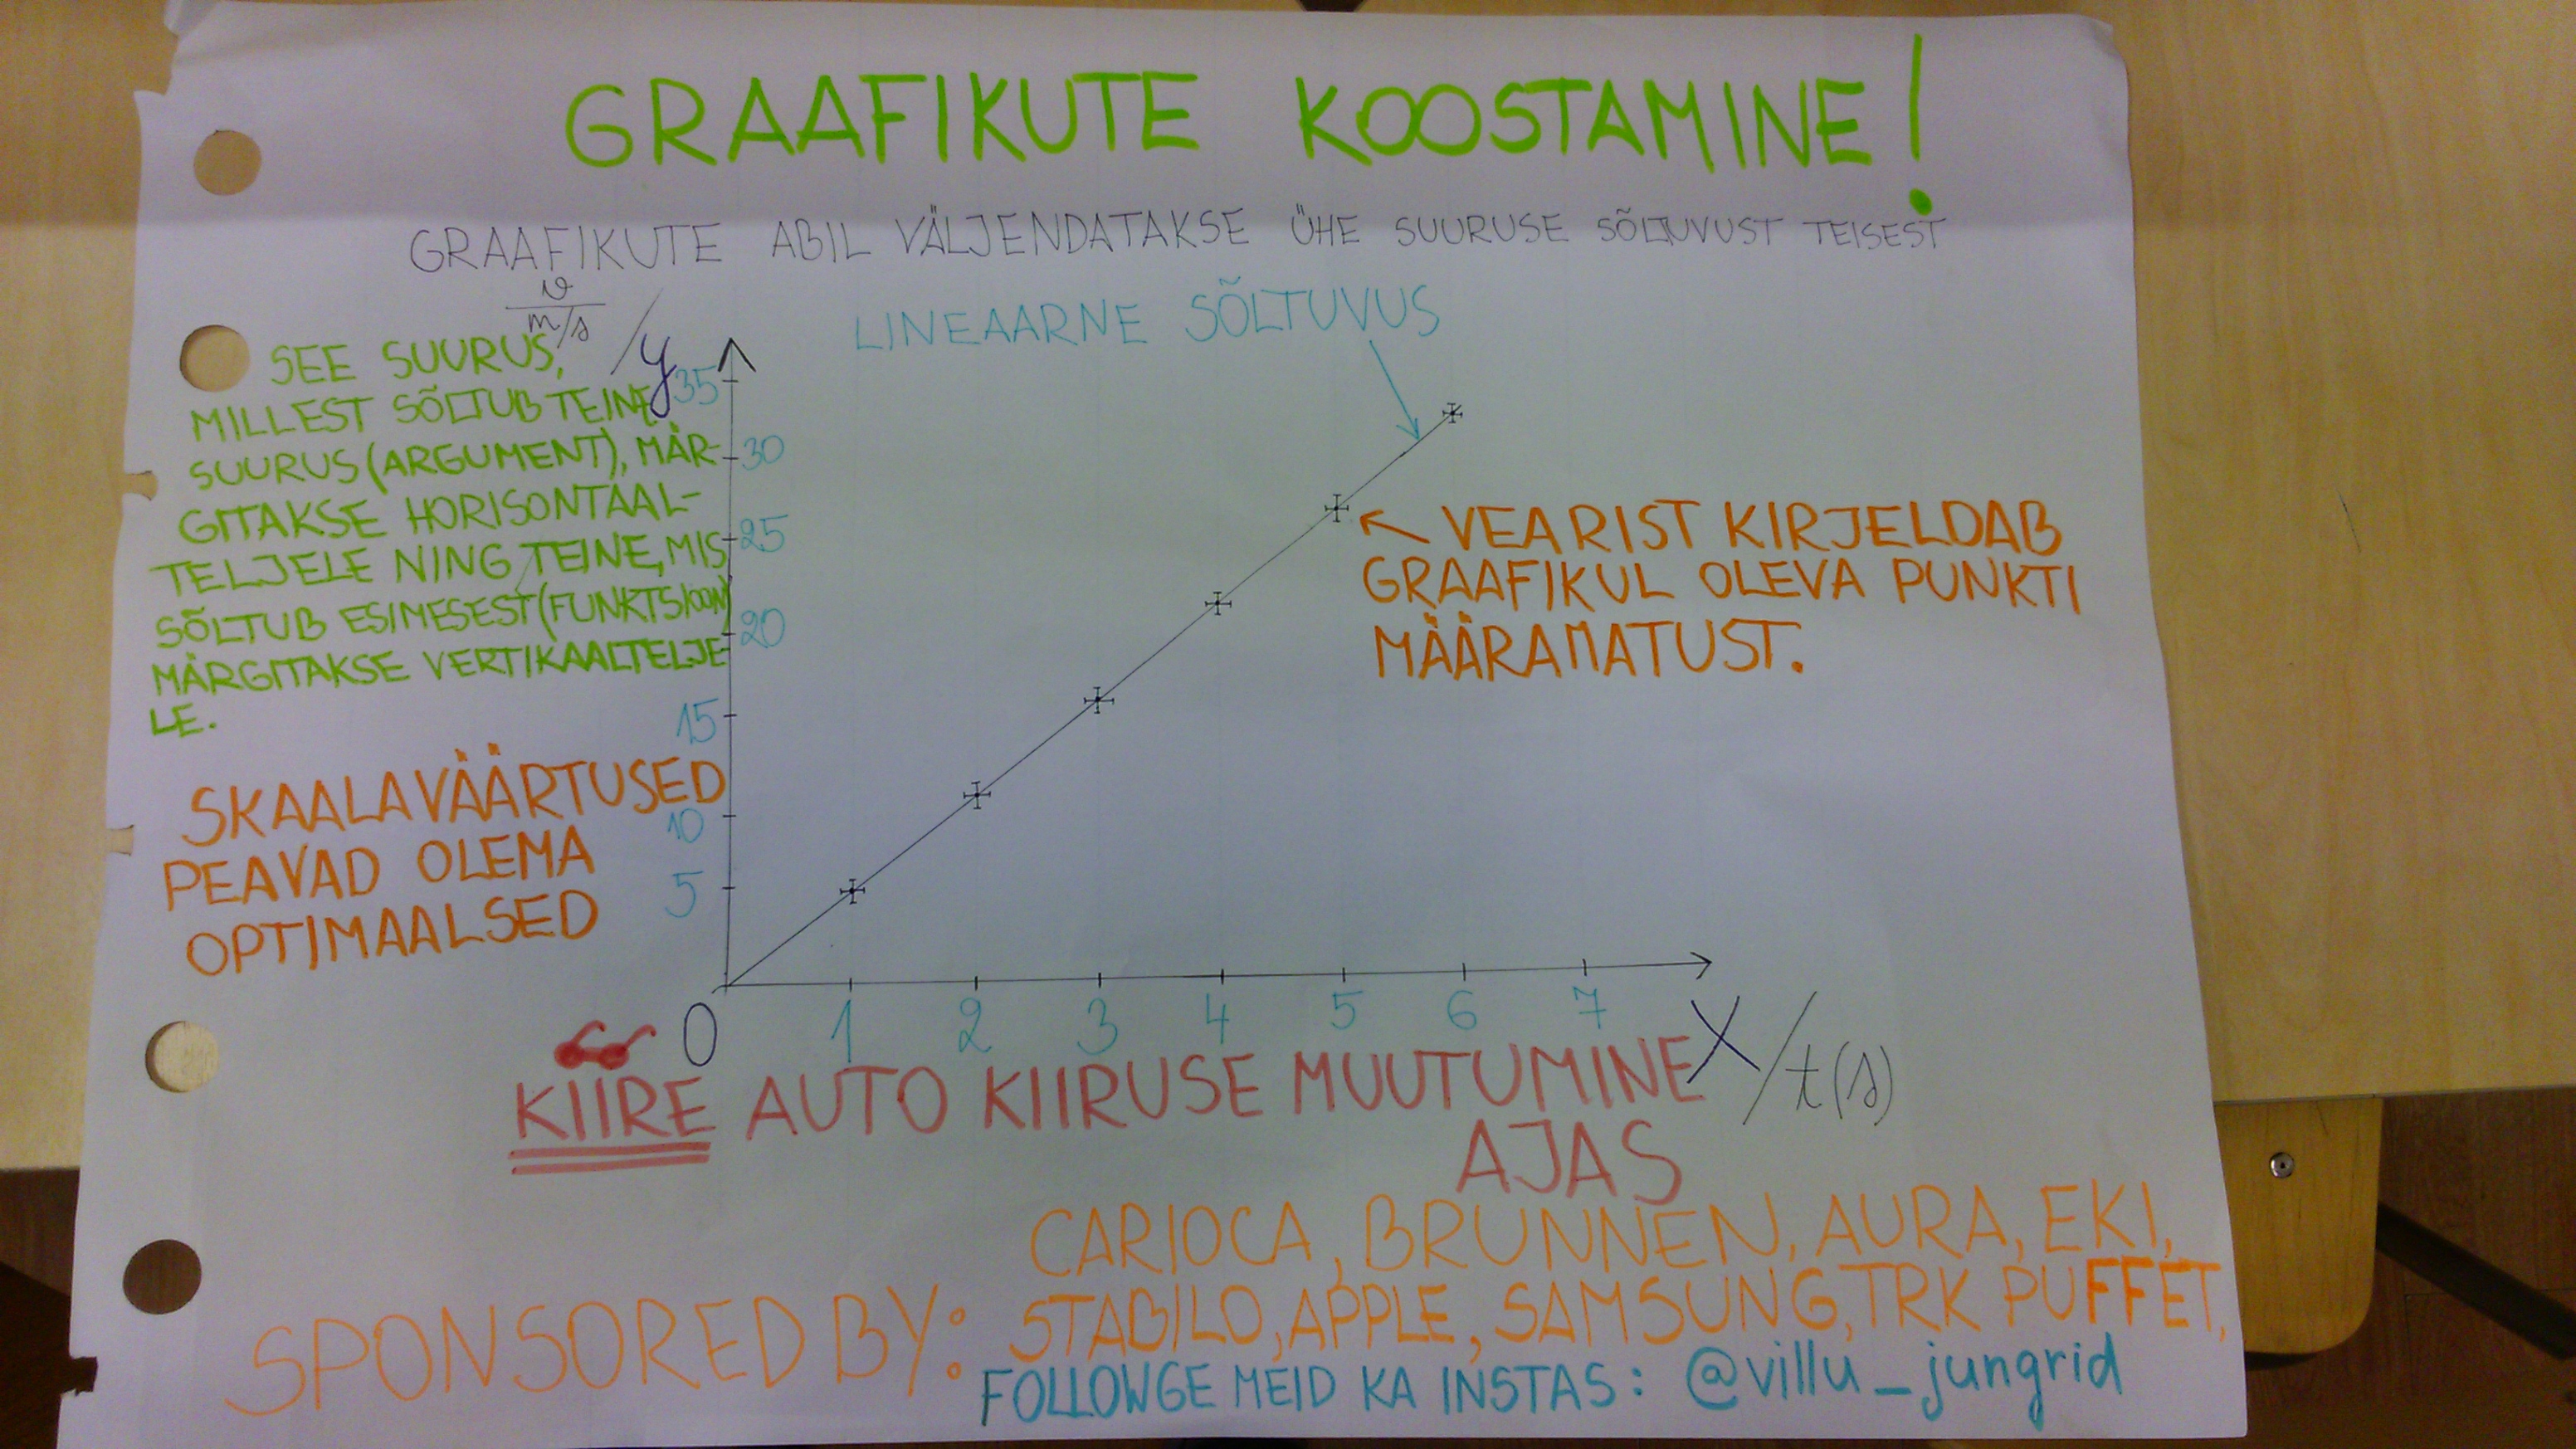 GRAAFIKUTE KOOSTAMINE!
GRAAFIKUTE ABIL VÄLJENDATAKSE ÜHE SUURUSE SÕLTUVUST TEISEST
v
m/s
/y
LINEAARNE SÕLTUVUS
SEE SUURUS,
MILLEST SÕLTUB TEINE
SUURUS (ARGUMENT), MÄR-
GITAKSE HORISONTAAL-
TELJELE NING TEINE, MIS
SÕLTUB ESIMESEST (FUNKTSIOON)
MÄRGITAKSE VERTIKAALTELJE
LE.
35
30
25
20
15
10
5
VEARIST KIRJELDAB
GRAAFIKUL OLEVA PUNKTI
MÄÄRAMATUST.
SKAALAVÄÄRTUSED
PEAVAD OLEMA
OPTIMAALSED
0 1 2 3 4 5 6 7
X/t(s)
KIIRE AUTO KIIRUSE MUUTUMINE
AJAS
SPONSORED BY:
CARIOCA, BRUNNEN, AURA, EKI,
STABILO, APPLE, SAMSUNG, TRK PUFFET,
FOLLOWGE MEID KA INSTAS: @villu_jungrid